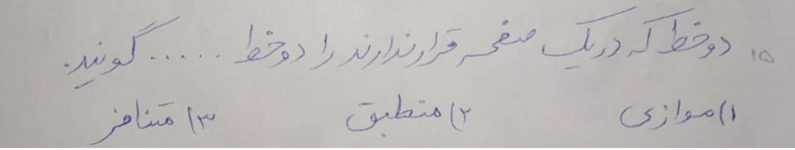 ۱۵ دو خط که در یک صفحه قرار ندارند را دو خط ..... گویند.
۱) موازی ۲) منطبق ۳) متنافر